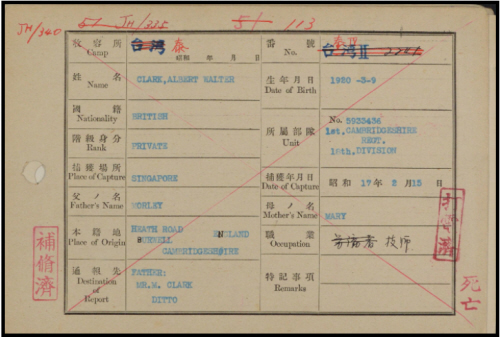 JM/340 51 JM/335 51 113
收容所 Camp 台湾 泰
昭和 年 月 日
番號 No. 台湾II 泰
姓名 Name CLARK, ALBERT WALTER
生年月日 Date of Birth 1920-3-9
國籍 Nationality BRITISH
所屬部隊 Unit No. 5933436
1st.CAMBRIDGESHIRE
REGT.
18th.DIVISION
階級身分 Rank PRIVATE
捕獲場所 Place of Capture SINGAPORE
捕獲年月日 Date of Capture 昭和 17年 2月 15日
父ノ名 Father's Name
母ノ名 Mother's Name MARY
本籍地 Place of Origin HEATH ROAD ENGLAND
BURWELL
CAMBRIDGESHIRE
職業 Occupation 技師
通報先 Destination of Report FATHER:
MR.M. CLARK
DITTO
特記事項 Remarks
補修濟
死亡